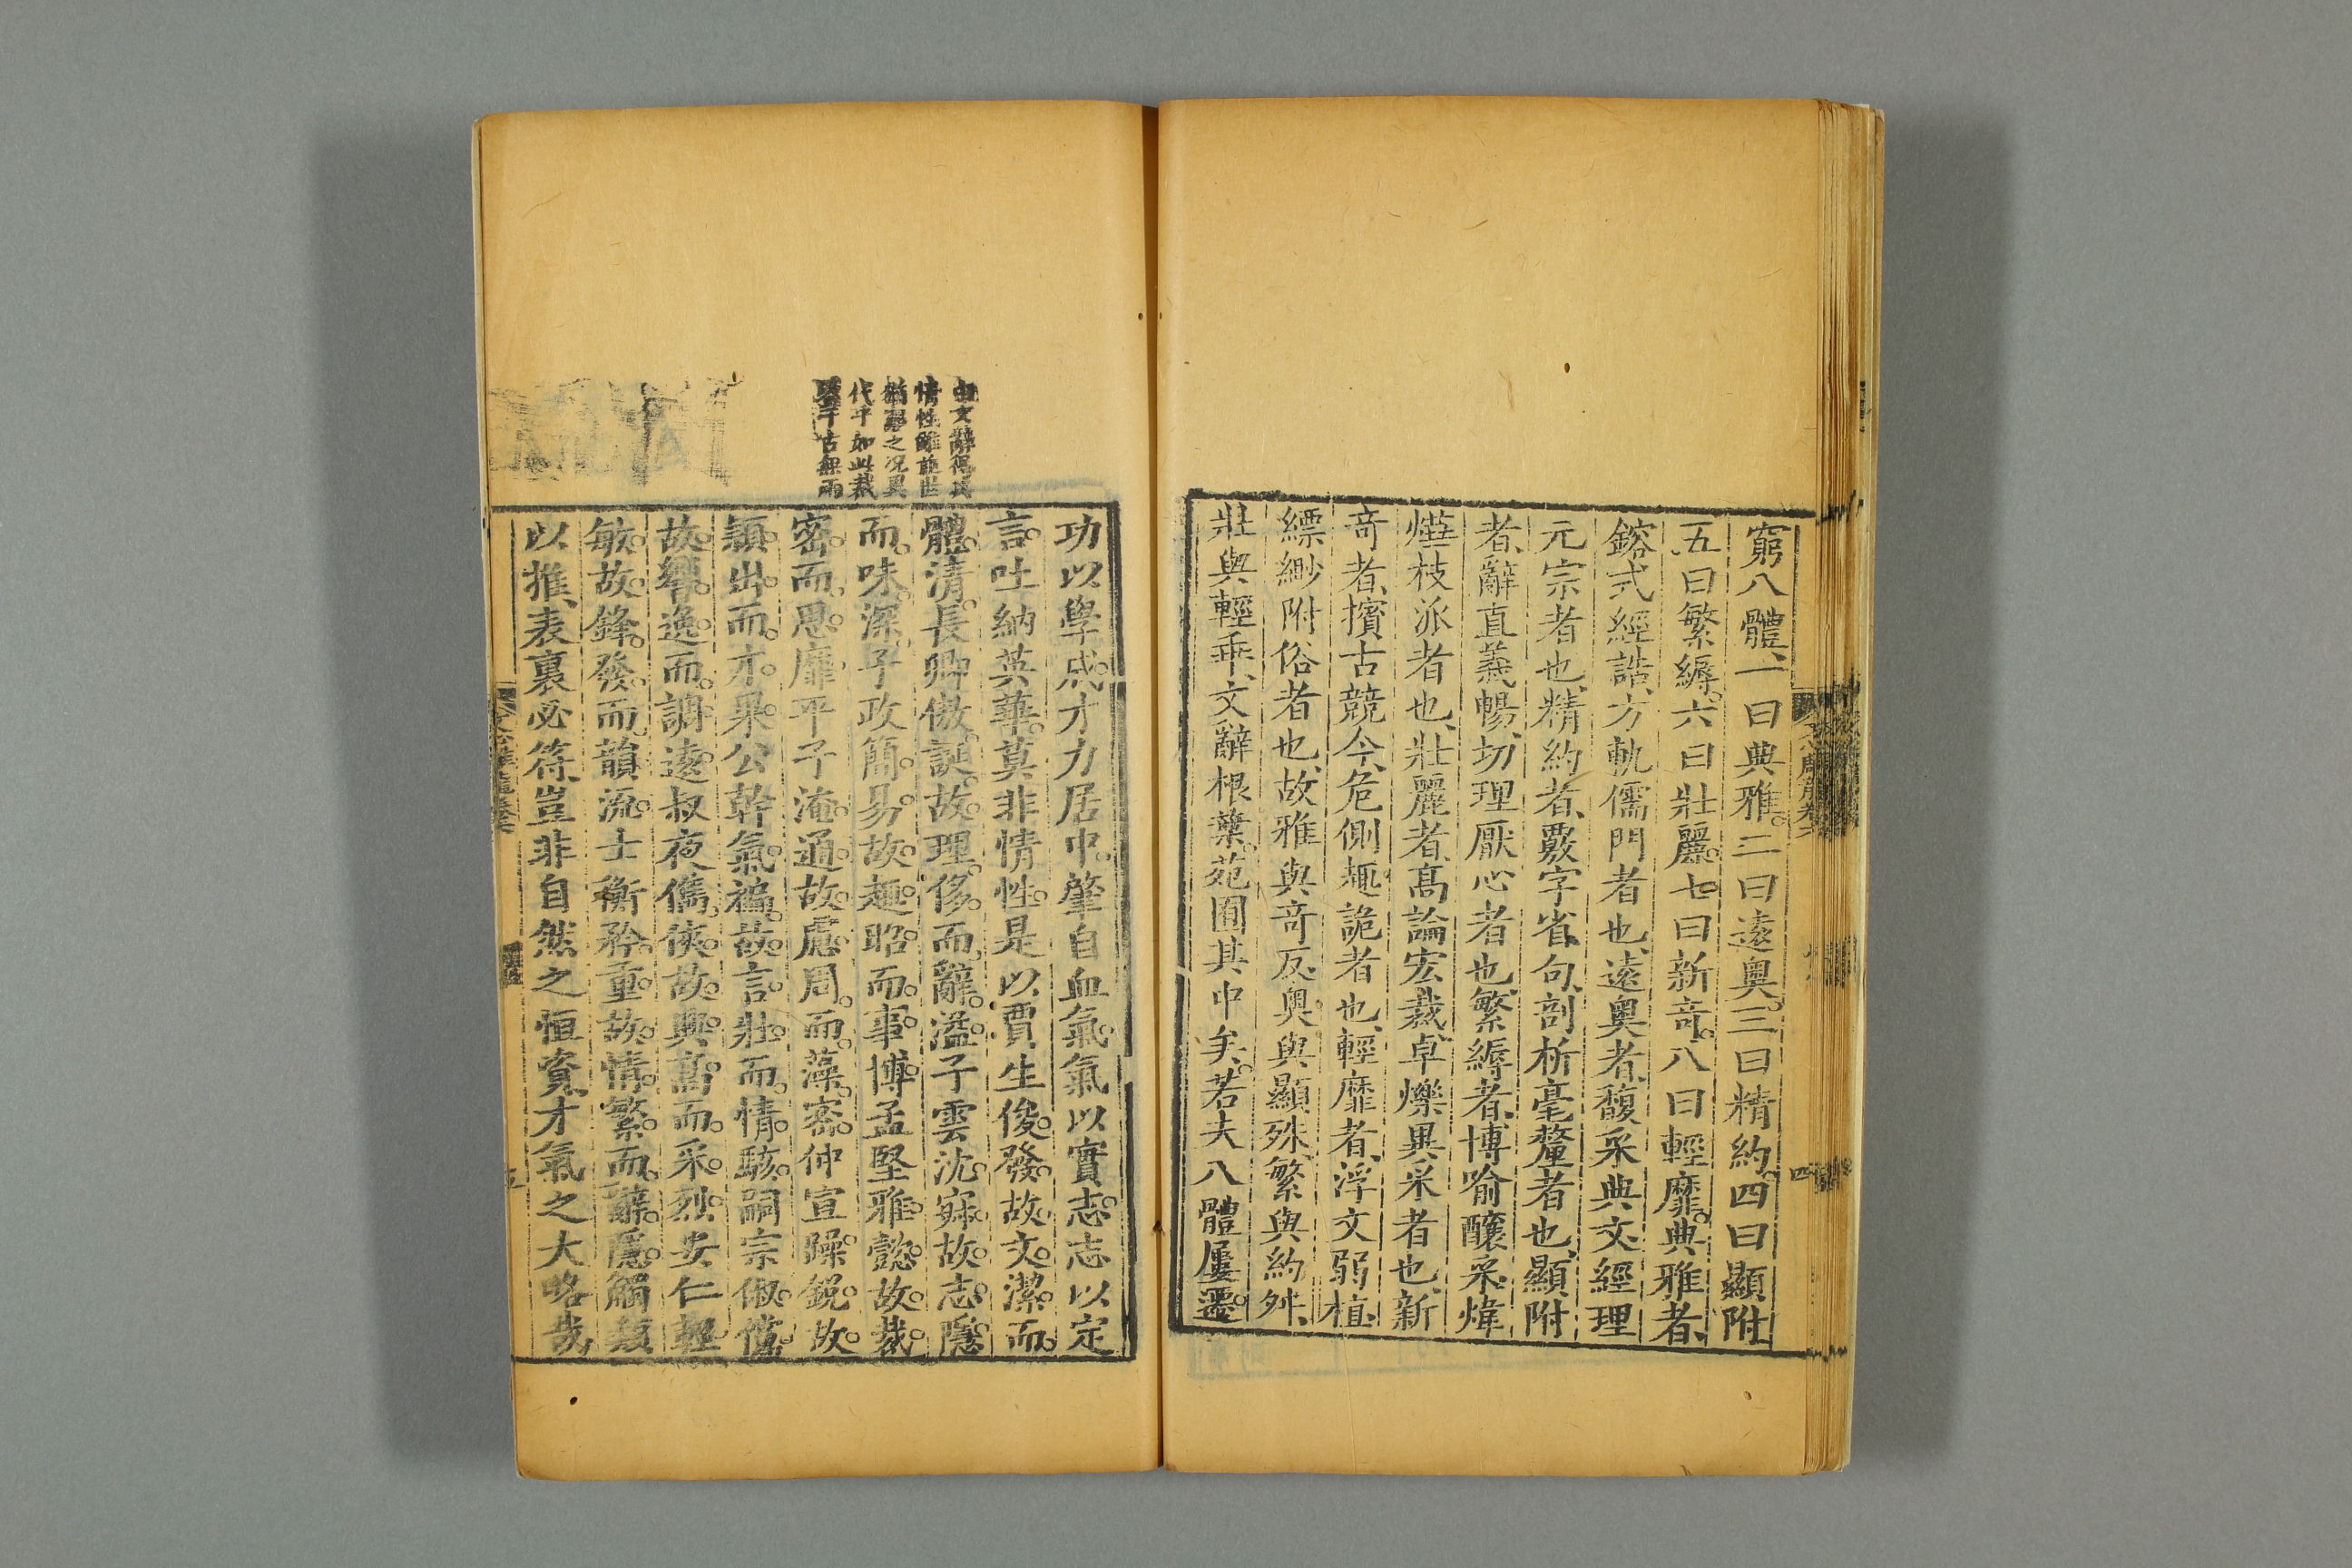 窮八體、一曰典雅。二曰遠奧。三曰精約。四曰顯附
五曰繁縟。六曰壯麗。七曰新奇。八曰輕靡。典雅者、
鎔式經誥、方軌儒門者也、遠奧者、馥采典文、經理
元宗者也、精約者、覈字省句、剖析毫釐者也、顯附
者、辭直義暢、切理厭心者也、繁縟者、博喻醲采、煒
燁枝派者也、壯麗者、高論宏裁、卓爍異采者也、新
奇者、擯古競今、危側趣詭者也、輕靡者、浮文弱植、
縹緲附俗者也、故雅與奇反、奧與顯殊、繁與約舛、
壯與輕乖、文辭根葉、苑囿其中矣。若夫八體屢遷。
四
由文辭得其
情性雖並世
猶難之况異
代乎如此裁
鑒千古無兩
功以學成。才力居中。肇自血氣。氣以實志。志以定
言。吐納英華。莫非情性。是以賈生俊發。故文潔而
體清。長卿傲誕。故理侈而辭溢。子雲沈寂。故志隱
而味深。子政簡易。故趣昭而事博。孟堅雅懿。故裁
密而思靡。平子淹通。故慮周而藻密。仲宣躁銳。故
穎出而才果。公幹氣褊。故言壯而情駭。嗣宗俶儻。
故響逸而調遠。叔夜儁俠。故興高而采烈。安仁輕
敏。故鋒發而韻流。士衡矜重。故情繁而辭隱。觸類
以推、表裏必符、豈非自然之恒資、才氣之大略哉